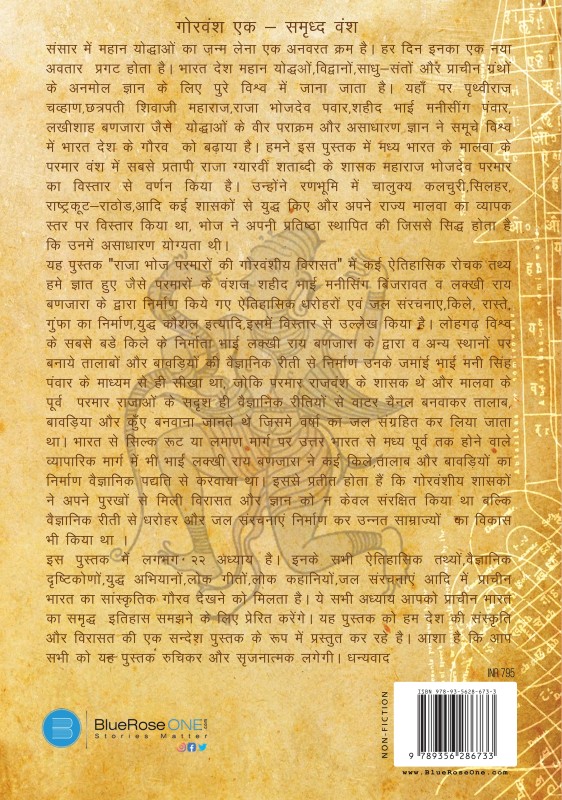 गोरवंश एक – समृध्द वंश
संसार में महान योद्धाओं का जन्म लेना एक अनवरत क्रम है। हर दिन इनका एक नया
अवतार प्रगट होता है। भारत देश महान योद्धओं,विद्वानों,साधु–संतों और प्राचीन ग्रंथों
के अनमोल ज्ञान के लिए पुरे विश्व में जाना जाता है। यहाँ पर पृथ्वीराज
चव्हाण,छत्रपती शिवाजी महाराज,राजा भोजदेव पवार,शहीद भाई मनीसींग पंवार,
लखीशाह बणजारा जैसे योद्धाओं के वीर पराक्रम और असाधारण ज्ञान ने समूचे विश्व
में भारत देश के गौरव को बढ़ाया है। हमने इस पुस्तक में मध्य भारत के मालवा के
परमार वंश में सबसे प्रतापी राजा ग्यारवीं शताब्दी के शासक महाराज भोजदेव परमार
का विस्तार से वर्णन किया है। उन्होंने रणभूमि में चालुक्य कलचुरी,सिलहर,
राष्ट्रकूट–राठोड,आदि कई शासकों से युद्ध किए और अपने राज्य मालवा का व्यापक
स्तर पर विस्तार किया था, भोज ने अपनी प्रतिष्ठा स्थापित की जिससे सिद्ध होता है
कि उनमें असाधारण योग्यता थी।
यह पुस्तक "राजा भोज परमारों की गोरवंशीय विरासत" में कई ऐतिहासिक रोचक तथ्य
हमे ज्ञात हुए जैसे परमारों के वंशज शहीद भाई मनीसिंग बिंजरावत व लक्खी राय
बणजारा के द्वारा निर्माण किये गए ऐतिहासिक धरोहरों एवं जल संरचनाए,किले, रास्ते,
गुंफा का निर्माण,युद्ध कौशल इत्यादि,इसमें विस्तार से उल्लेख किया है। लोहगढ़ विश्व
के सबसे बडे किले के निर्माता भाई लक्खी राय बणजारा के द्वारा व अन्य स्थानों पर
बनाये तालाबों और बावड़ियों की वैज्ञानिक रीती से निर्माण उनके जमांई भाई मनी सिंह
पंवार के माध्यम से ही सीखा था, जोकि परमार राजवंश के शासक थे और मालवा के
पूर्व परमार राजाओं के सदृश ही वैज्ञानिक रीतियों से वाटर चैनल बनवाकर तालाब,
बावड़िया और कुँए बनवाना जानते थें जिसमे वर्षा का जल संग्रहित कर लिया जाता
था। भारत से सिल्क रूट या लमाण मार्ग पर उत्तर भारत से मध्य पूर्व तक होने वाले
व्यापारिक मार्ग में भी भाई लक्खी राय बणजारा ने कई किले,तालाब और बावड़ियों का
निर्माण वैज्ञानिक पद्यति से करवाया था। इससे प्रतीत होता हैं कि गोरवंशीय शासकों
ने अपने पुरखों से मिली विरासत और ज्ञान को न केवल संरक्षित किया था बल्कि
वैज्ञानिक रीती से धरोहर और जल संरचनाएं निर्माण कर उन्नत साम्राज्यों का विकास
भी किया था ।
इस पुस्तक में लगभग २२ अध्याय है। इनके सभी ऐतिहासिक तथ्यों,वैज्ञानिक
दृष्टिकोणों,युद्ध अभियानों,लोक गीतों,लोक कहानियों,जल संरचनाएं आदि में प्राचीन
भारत का सांस्कृतिक गौरव देखने को मिलता है। ये सभी अध्याय आपको प्राचीन भारत
का समृद्ध इतिहास समझने के लिए प्रेरित करेंगे। यह पुस्तक को हम देश की संस्कृति
और विरासत की एक सन्देश पुस्तक के रूप में प्रस्तुत कर रहे है। आशा है कि आप
सभी को यह पुस्तक रुचिकर और सृजनात्मक लगेगी। धन्यवाद
INR 795
NON-FICTION
ISBN 978-93-5628-673-3
9 789356 286733
www.BlueRoseOne.com
B
BlueRose ONE.com
Stories Matter